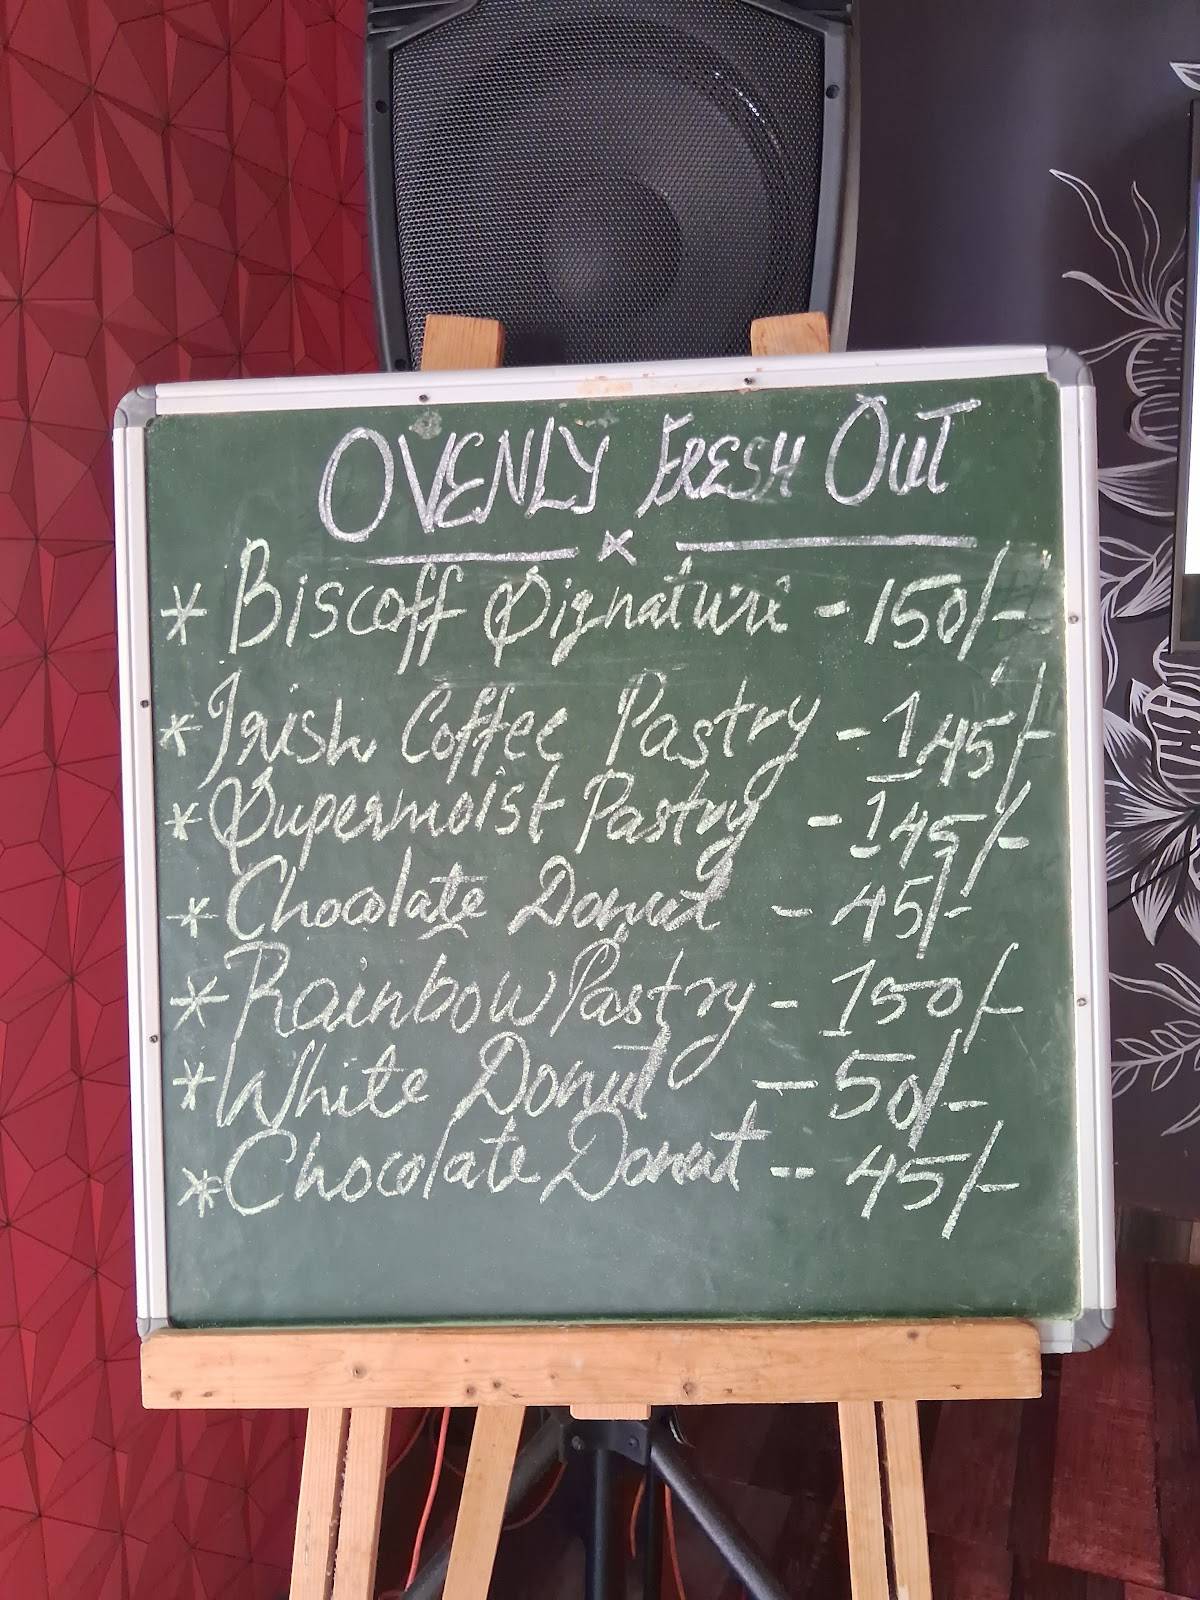 OVENLY FRESH OUT
x
* Biscoff Signature - 150/-
* Irish Coffee Pastry - 145/-
* Supermoist Pastry - 145/-
* Chocolate Donut - 45/-
* Rainbow Pastry - 150/-
* White Donut - 50/-
* Chocolate Donut - 45/-